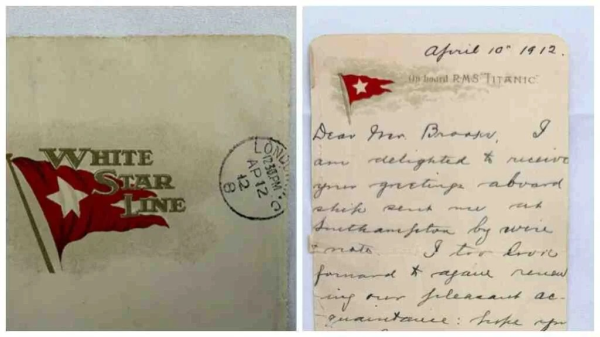 WHITE
STAR
LINE
LONDON
12 30 PM
AP 12
12
8
April 10th 1912.
On board RMS "TITANIC"
Dear Mrs Brooks, I
am delighted to receive
your greetings aboard
ship sent me at
Southampton by wire
& note. I too look
forward to again renew
ing our pleasant ac-
quaintance: hope you